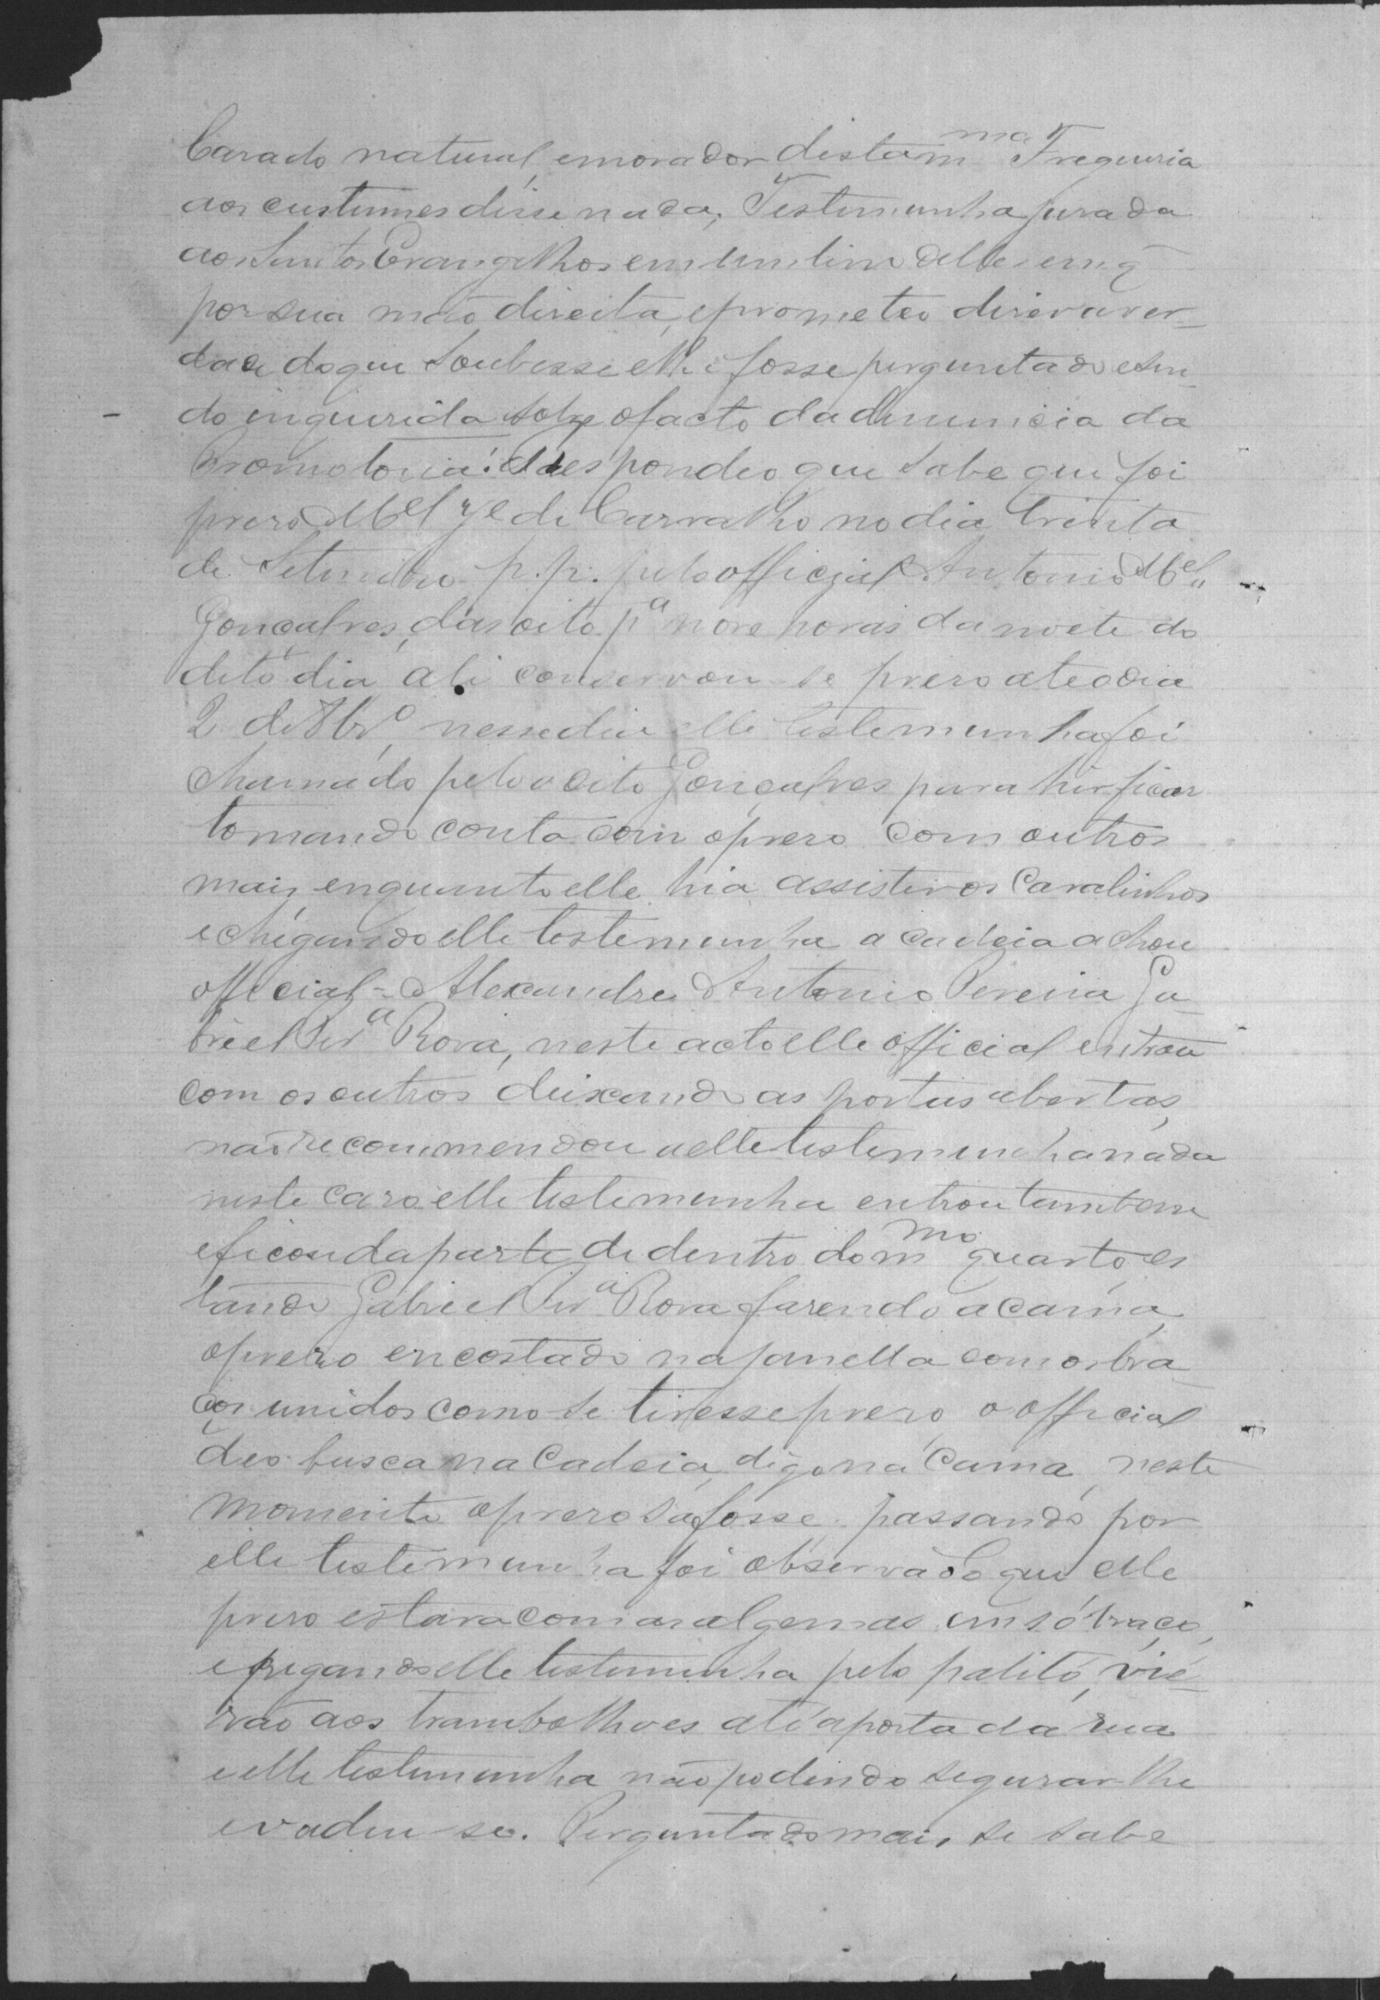 Casado natural, e morador distam ma Freguezia
aos custumes disse nada, Testemunha jurada
aos Santos Evangelhos em um livro delles em q
por sua mão direita, e prometeo dizer a ver-
dade do que Soubesse e lhe fosse perguntado e sen-
do inquerida sobre o facto da denuncia da
Promotoria: Respondeo que Sabe que foi
prezo Mel Je de Carvalho no dia trinta
de Setembro p.p. pelo official Antonio Mel
Gonçalves, das oito pa nove horas da noite do
dito dia ali conservou-se prezo até o dia
2 de 8bro, nesse dia elle testemunha foi
chamado pelo dito Gonçalves para hir ficar
tomando conta com o prezo com outros
mais, enquanto elle hia assistir os Cavalinhos
e chegando elle testemunha a cadeia achou
official - Alexandre Antonio Pereira Ga-
briel Pra Roza, neste acto elle official entrou
com os outros deixando as portas abertas,
não recommendou a elle testemunha nada
neste cazo elle testemunha entrou tambem
e ficou da parte de dentro do mmo quarto, es
tando Gabriel Pra Roza fazendo a cama,
o prezo encostado na janella com os bra-
ços unidos como se tivesse prezo, o official
deo busca na Cadeia, digo na Cama, neste
momento o prezo safosse, passando por
elle testemunha foi observado que elle
prezo estava com as algemas em só braço,
e pegando elle testemunha pelo palitó, vie-
rão aos trambolhoes até a porta da rua
e elle testemunha não podendo segurar-lhe
evadiu-se. Perguntado mais, se sabe